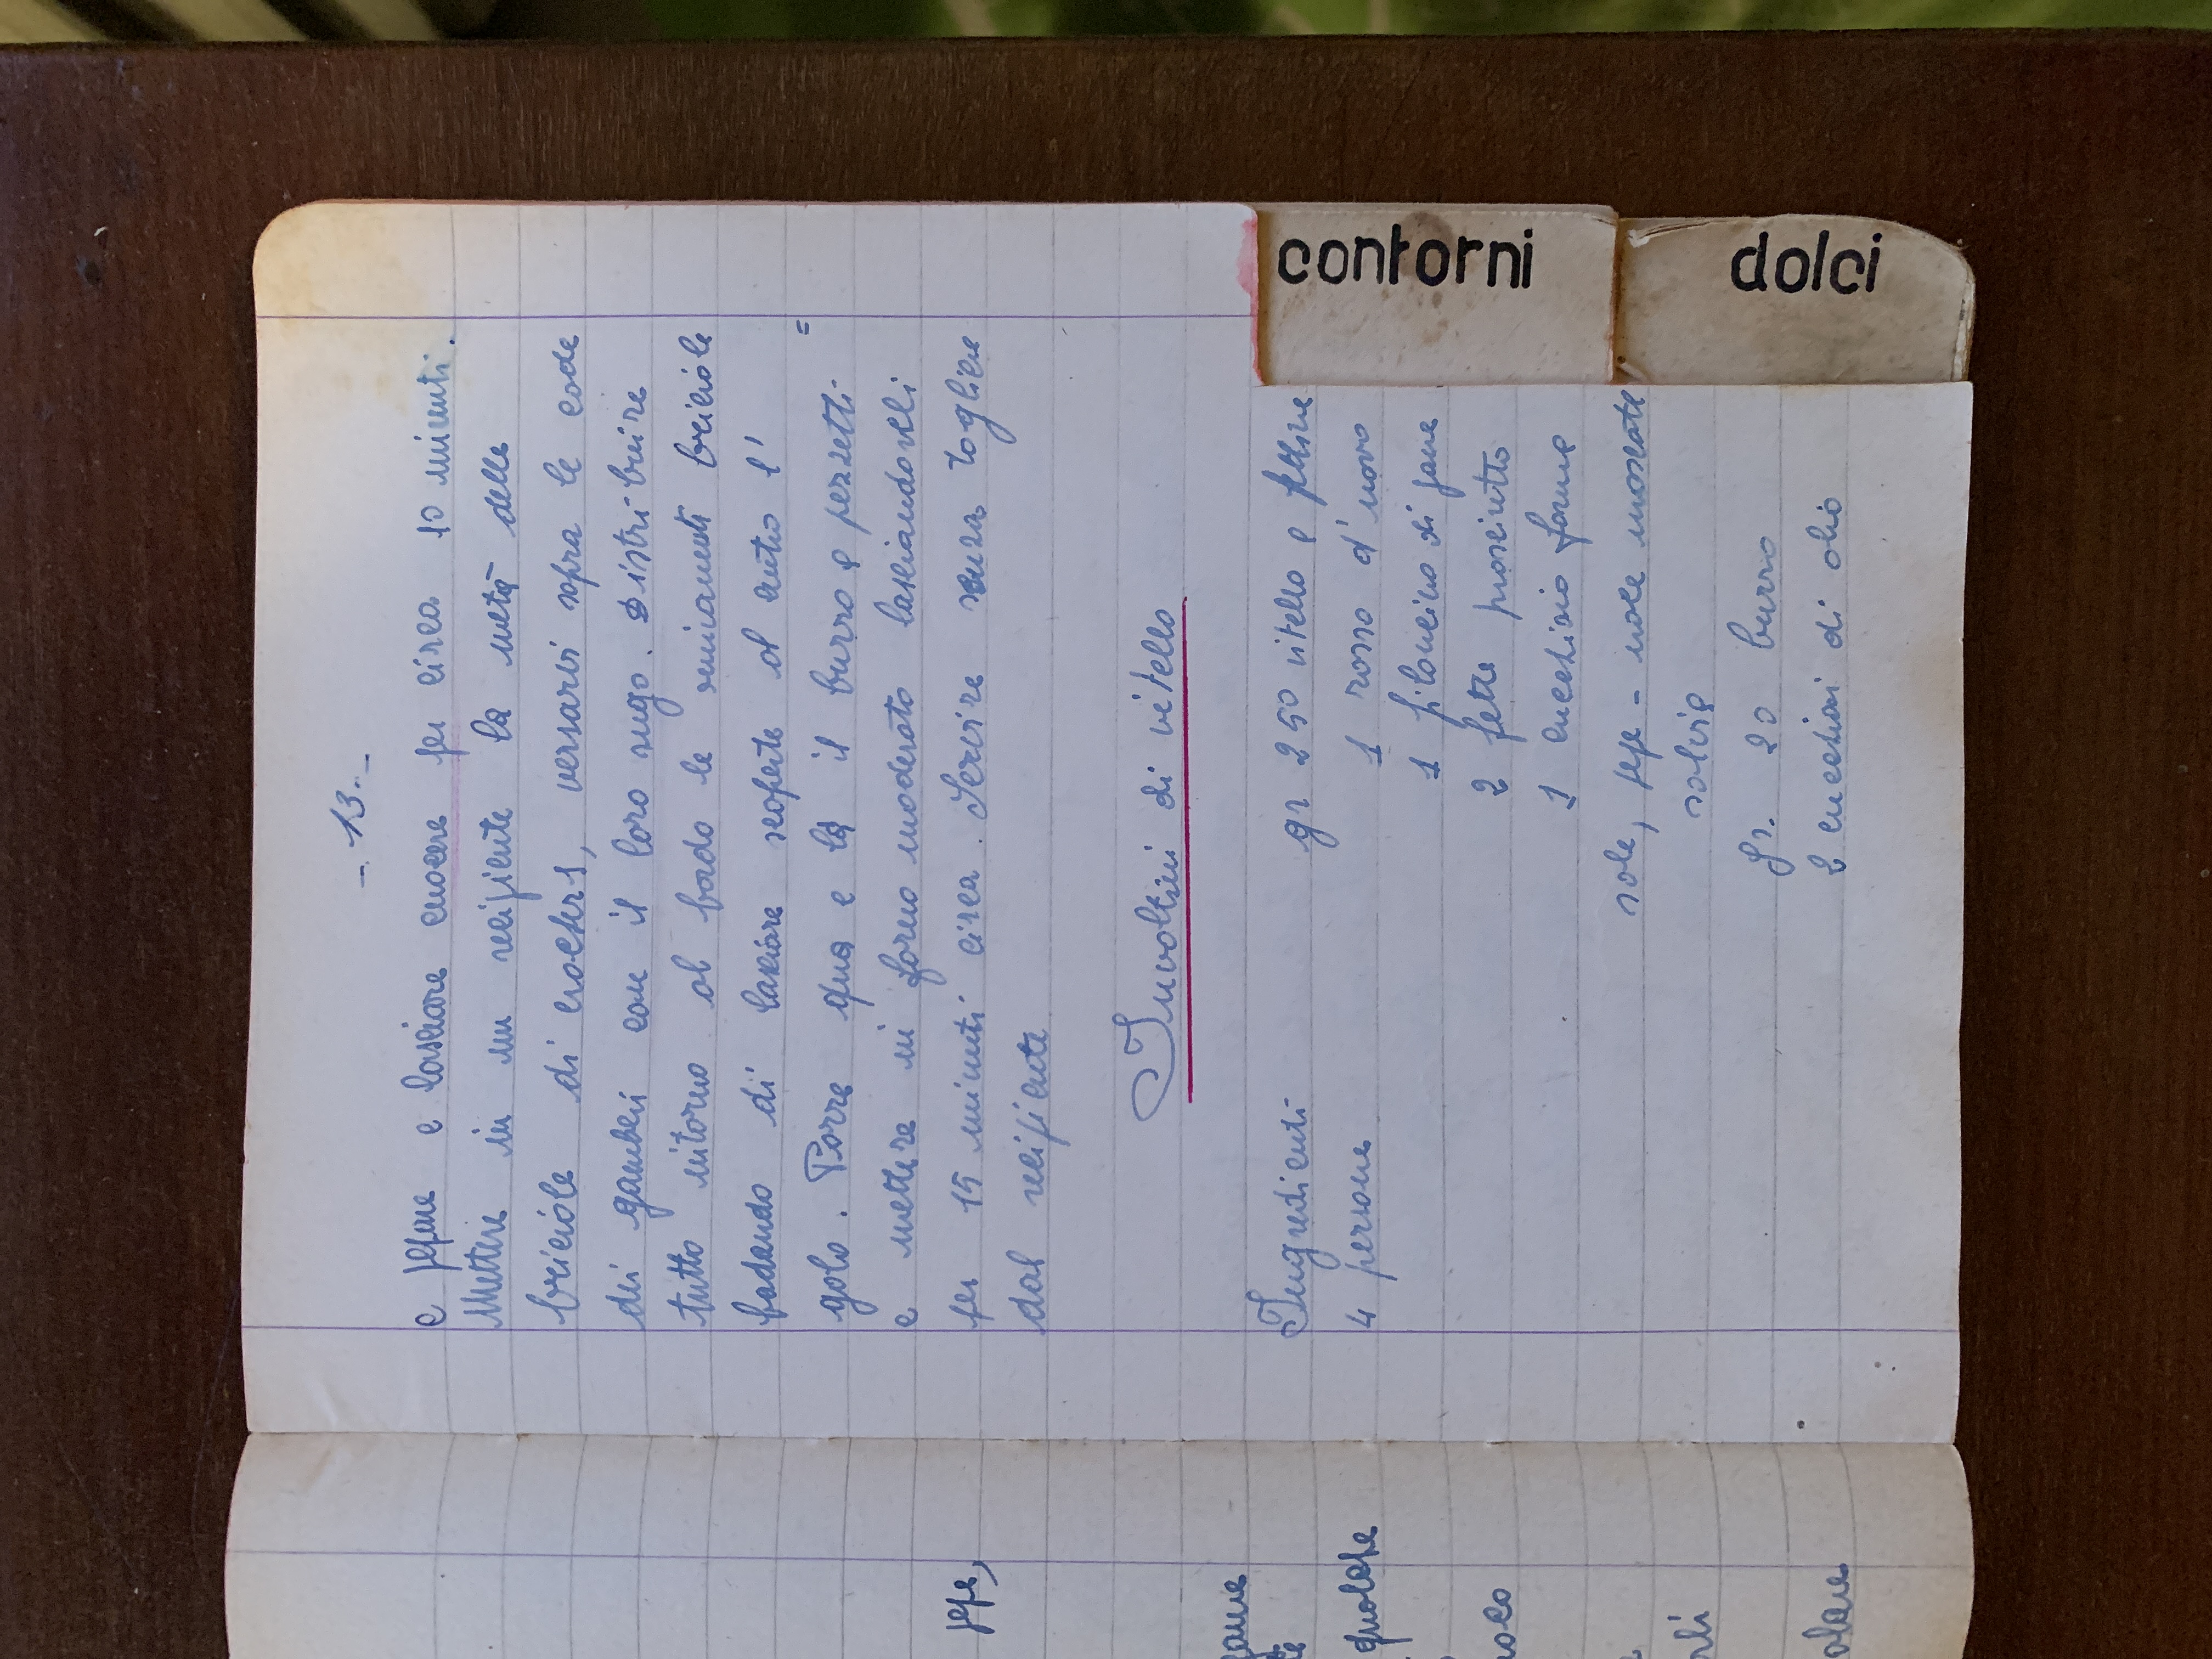 - 13. -
e pepere e lasciare cuocere per circa 10 minuti.
Mettere in un recipiente la metà delle
briciole di crackers, versarvi sopra le code
dei gamberi con il loro sugo. Distribuire
tutto intorno al bordo le rimanenti briciole
badando di lasciare scoperte al centro l'
golo. Porre qua e là il burro a pezzetti =
e mettere in forno moderato lasciandoveli
per 15 minuti circa. Servire senza togliere
dal recipiente
Involtini di vitello
Ingredienti gr 250 vitello a fettine
4 persone 1 rosso d'uovo
1 filoncino di pane
2 fette prosciutto
1 cucchiaio forma
sale, pepe - noce moscate
salvia
gr. 20 burro
2 cucchiai di olio
pepe,
qualche
contorni
dolci